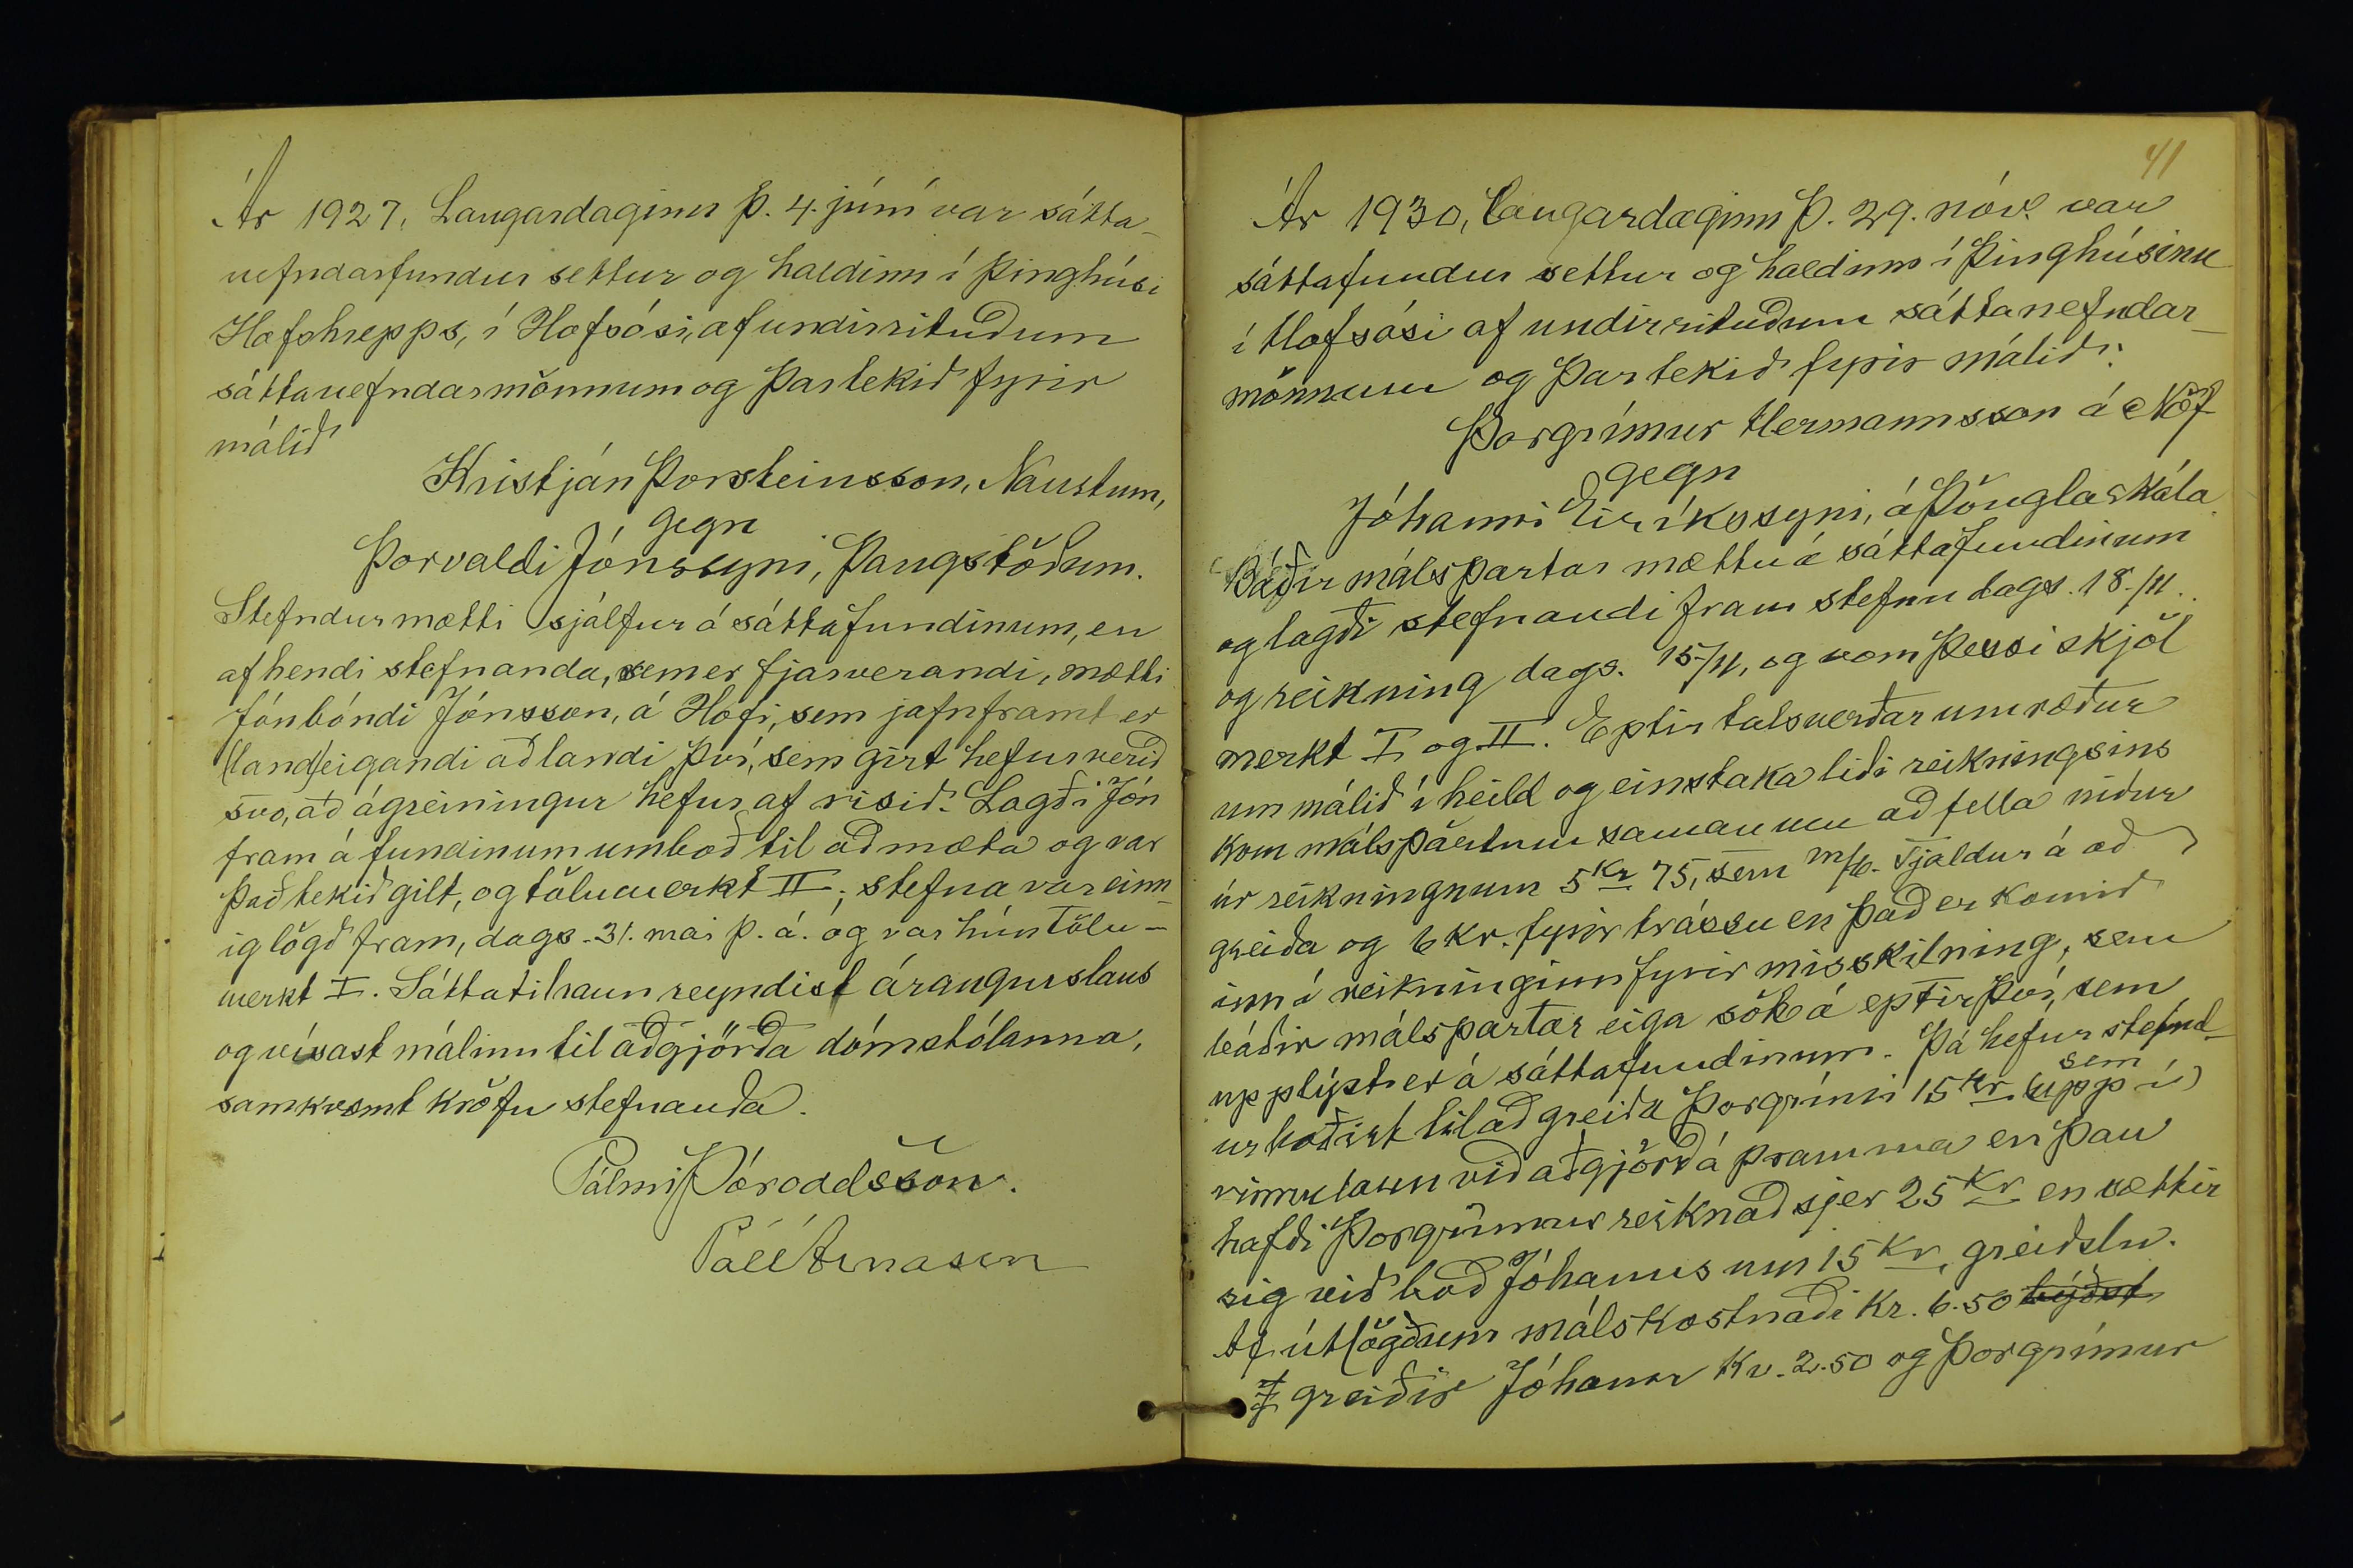 Ár 1927, Laugardaginn þ. 4. júní var sátta-
nefndarfundur settur og haldinn í þinghúsi
Hofshrepps, í Hofsósi, af undirrituðum
sáttanefndarmönnum og þar tekið fyrir
málið
Kristján Þorsteinsson, Naustum,
gegn
Þorvaldi Jónssyni, Þangstöðum.
Stefndur mætti sjálfur á sáttafundinum, en
af hendi stefnanda, sem er fjarverandi, mætti
Jón bóndi Jónsson, á Hofi, sem jafnframt er
(land)eigandi að landi því, sem girt hefur verið
svo, að ágreiningur hefur af risið. Lagði Jón
fram á fundinum umboð til að mæta og var
það tekið gilt, og tölumerkt II; stefna var einn-
ig lögð fram, dags. 31. mai þ. á. og var hún tölu-
merkt I. Sáttatilraun reyndist árangurslaus
og vísast málinu til aðgjörða dómstólanna,
samkvæmt kröfu stefnanda.
Pálmi Þóroddsson.
Páll Árnason
41
Ár 1930, laugardaginn þ. 29. nóv. var
sáttafundur settur og haldinn í þinghúsinu
í Hofsósi af undirrituðum sáttanefndar-
mönnum og þar tekið fyrir málið:
Þorgrímur Hermannsson á Nöf
gegn
Jóhanni Eiríkssyni, á Þönglaskála.
Báðir málspartar mættu á sáttafundinum
og lagði stefnandi fram stefnu dags. 18./11..
og reikning dags. 15./11, og vom þessi skjöl
merkt I og II. Eptir talsverðar umræður
um málið í heild og einstaka liði reikningsins
kom málspörtum saman um að fella niður
úr reikningnum 5 Kr 75, sem m/b. Tjaldur á að
greiða og 6 Kr. fyrir trássu en það er komið
inn á reikninginn fyrir misskilning, sem
báðir málspartar eiga sök á eptir því, sem
upplýst er á sáttafundinum. Þá hefur stefnd-
ur boðist til að greiða Þorgrími 15 Kr. sem (upp í)
vinnulaun við aðgjörð á pramma en þau
hafði Þorgrímur reiknað sjer 25 Kr en sættir
sig við boð Jóhanns um 15 Kr. greiðslu.
Af útlögðum málskostnaði Kr. 6.50 býðst
greiðir Jóhann Kr. 2.50 og Þorgrímur